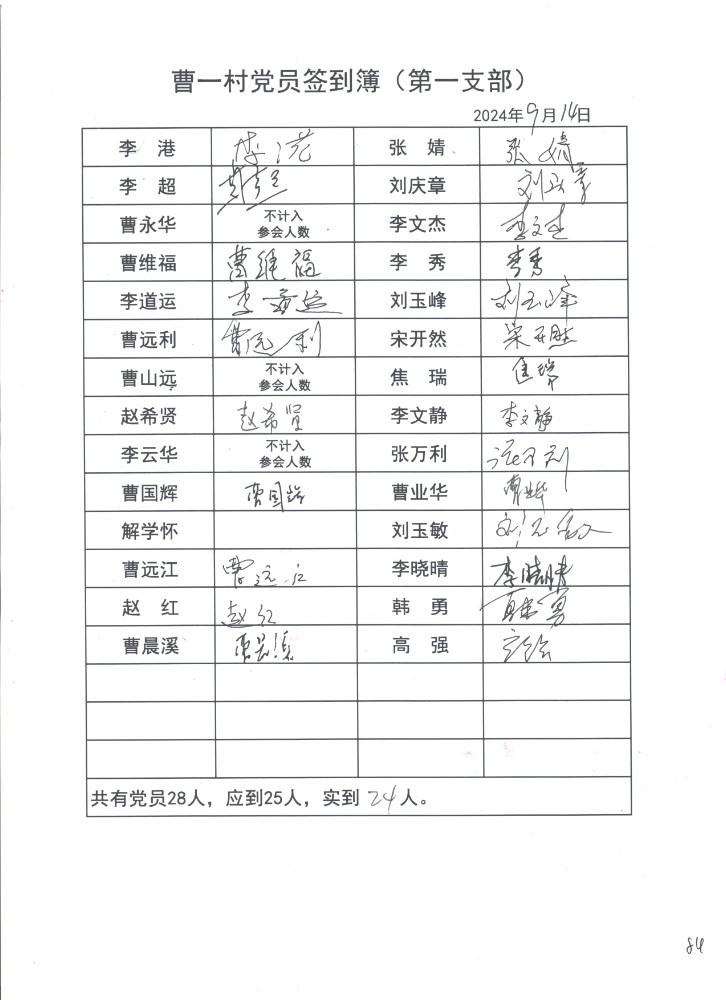 曹一村党员签到簿（第一支部）
2024年9月14日
李 港 李港 张 婧 张婧
李 超 李超 刘庆章 刘庆章
曹永华 不计入 李文杰 李文杰
参会人数
曹维福 曹维福 李 秀 李秀
李道运 李道运 刘玉峰 刘玉峰
曹远利 曹远利 宋开然 宋开然
曹山远 不计入 焦 瑞 焦瑞
参会人数
赵希贤 赵希贤 李文静 李文静
李云华 不计入 张万利 张万利
参会人数
曹国辉 曹国辉 曹业华 曹业华
解学怀 刘玉敏 刘玉敏
曹远江 曹远江 李晓晴 李晓晴
赵 红 赵红 韩 勇 韩勇
曹晨溪 曹晨溪 高 强 高强
共有党员28人，应到25人，实到24人。
84